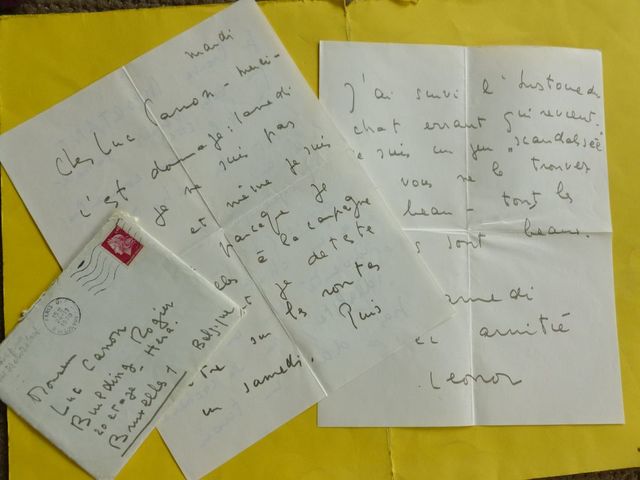 mardi
Cher Luc Canon - merci -
c'est dommage : samedi
je ne suis pas
et même je suis
parceque je
à la campagne
je déteste
être sur les routes
un samedi. Puis
J'ai suivi l'histoire du
chat errant qui revient.
je suis un peu "scandalisée"
vous ne le trouvez
beau - tous les
sont beaux.
amitié
Leonor
Monsieur
Luc Canon
Building Rogier
20 etage -
Bruxelles 1 Belgique